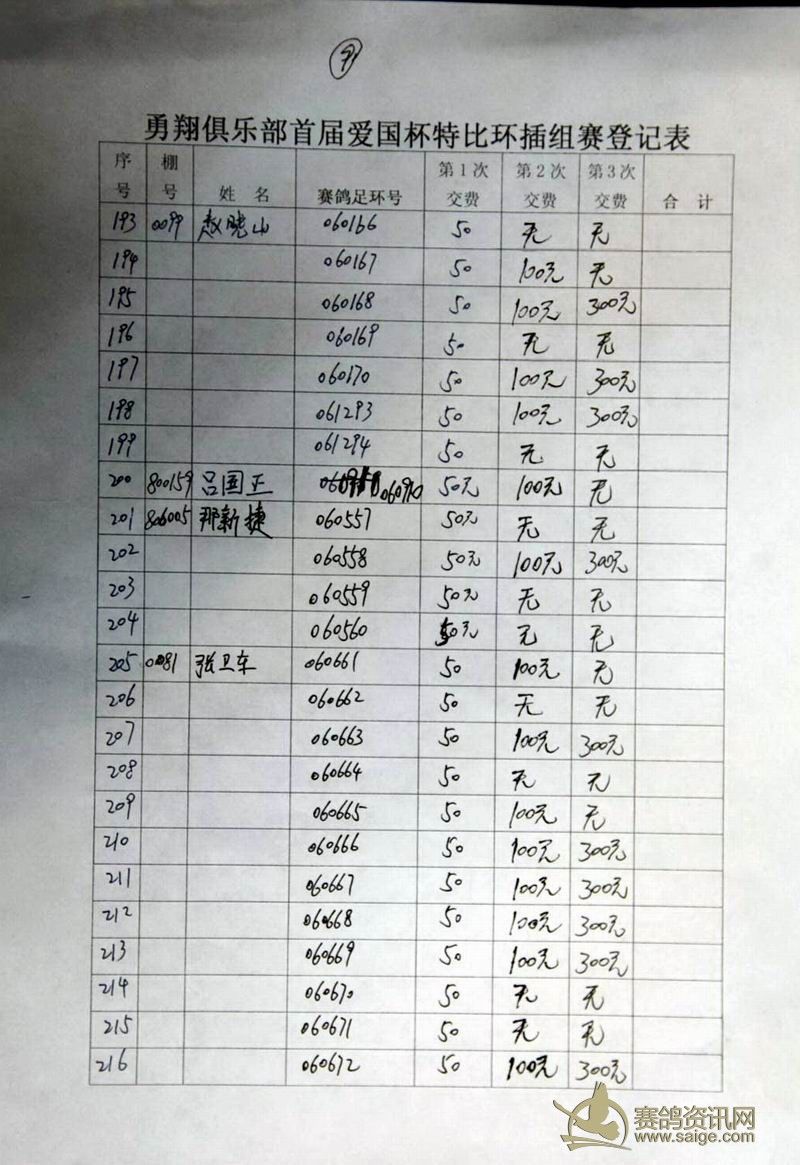 9
勇翔俱乐部首届爱国杯特比环插组赛登记表
序号 棚号 姓 名 赛鸽足环号 第1次交费 第2次交费 第3次交费 合 计
193 0099 赵晓山 060166 50 无 无
194 060167 50 100元 无
195 060168 50 100元 300元
196 060169 50 无 无
197 060170 50 100元 300元
198 061293 50 100元 300元
199 061294 50 无 无
200 800159 吕国正 060910 50元 100元 无
201 806005 那新捷 060557 50元 无 无
202 060558 50元 100元 300元
203 060559 50元 无 无
204 060560 50元 无 无
205 0081 张卫车 060661 50 100元 无
206 060662 50 无 无
207 060663 50 100元 300元
208 060664 50 无 无
209 060665 50 100元 无
210 060666 50 100元 300元
211 060667 50 100元 300元
212 060668 50 100元 300元
213 060669 50 100元 300元
214 060670 50 无 无
215 060671 50 无 无
216 060672 50 100元 300元
赛鸽资讯网
www.saige.com